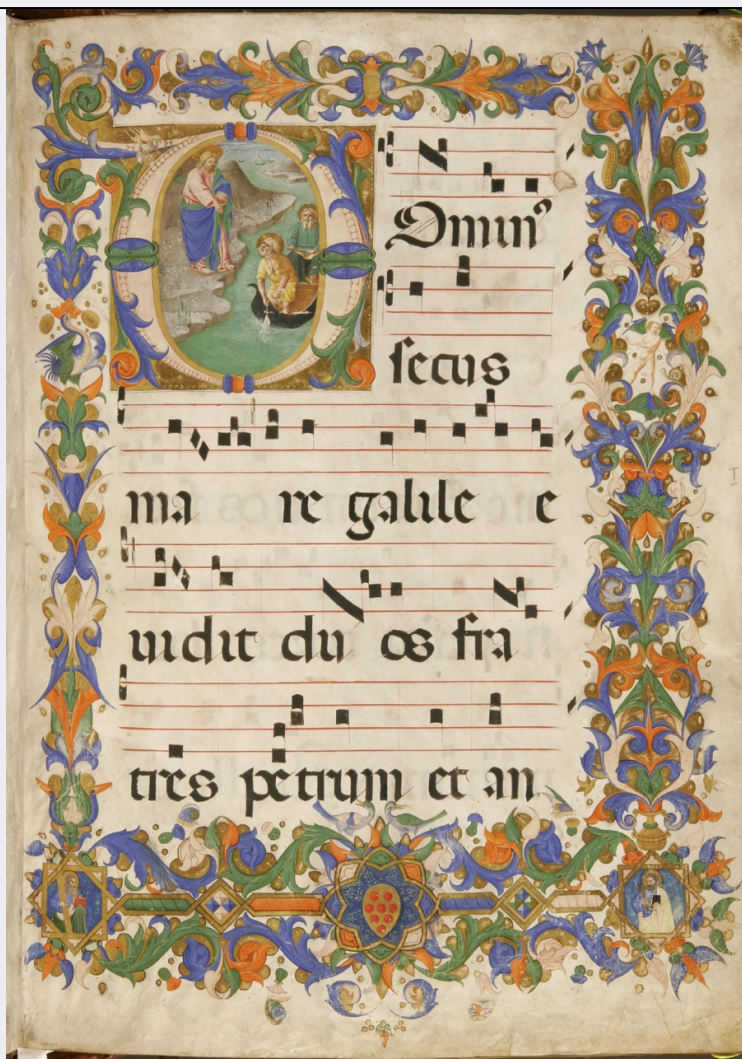 DOminꝰ
ſecus
ma re galile e
uidit du os fra
tres petrum et an